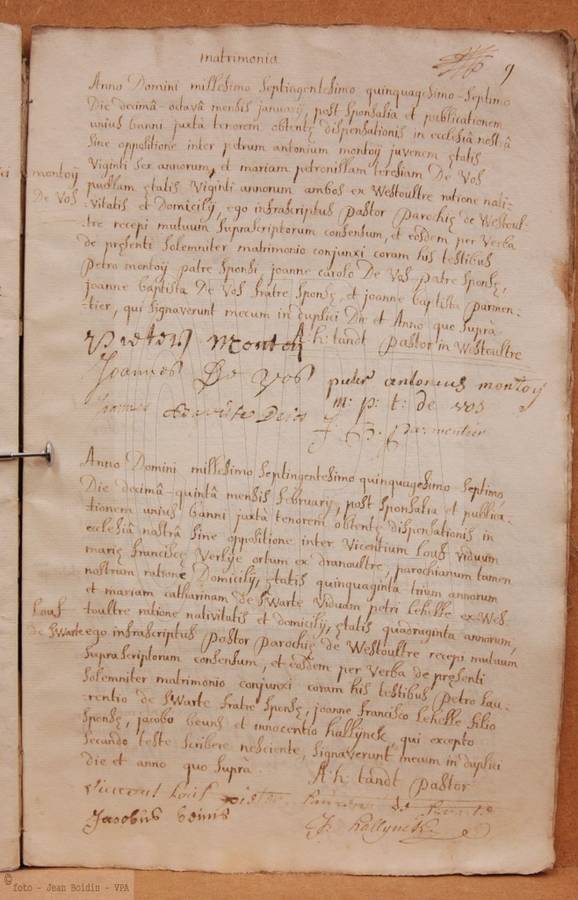 matrimonia
9
Anno Domini millesimo Septingentesimo quinquagesimo-Septimo
Die decimâ-octavâ mensis januarij, post Sponsalia et publicationem
unius banni juxtà tenorem obtentę dispensationis in ecclesiâ nostrâ
Sine oppositione inter petrum antonium montoij juvenem ętatis
Viginti Sex annorum, et mariam petronillam teresiam De Vos
puellam ętatis Viginti annorum ambos ex Westoultre ratione nati-
-vitatis et Domicilij, ego infrascriptus pastor parochię de Westoul-
-tre recepi mutuum Suprascriptorum consensum, et eosdem per Verba
de pręsenti Solemniter matrimonio conjunxi coram his testibus
petro montoij patre Sponsi, joanne carolo De Vos patre Sponsę,
joanne baptista De Vos fratre Sponsę, et joanne baptista parmen-
-tier, qui Signaverunt mecum in duplici Die et Anno que Suprà
montoij
De Vos
A:h: tandt pastor in Westoultre
Pieter montoij
Joannes De Vos
pieter antonius montoij
m: p: t: de vos
J: B: parmentier
Anno Domini millesimo Septingentesimo quinquagesimo-Septimo,
Die decimâ-quintâ mensis February, post Sponsalia et publica-
-tionem unius banni juxtà tenorem obtentę dispensationis in
ecclesiâ nostrâ Sine oppositione inter Vicentium Lous viduum
marię franciscę Verlye ortum ex dranoultre, parochianum tamen
nostrum ratione Domicilij, ętatis quinquaginta trium annorum
et mariam catharinam de SWarte Viduam petri Lehelle ex Wes-
-toultre ratione nativitatis et domicilij, ętatis quadraginta annorum,
ego infrascriptus pastor parochię de Westoultre recepi mutuum
Suprascriptorum consensum, et eosdem per Verba de pręsenti
Solemniter matrimonio conjunxi coram his testibus petro Lau-
-rentio de SWarte fratre Sponsę, joanne francisco Lehelle filio
Sponsę, jacobo beuns et innocentio hallynck qui excepto
Secundo teste Scribere nesciente, Signaverunt mecum in duplici
die et anno quo Suprà.
Lous
de SWarte
A:h: tandt pastor
Jacobus beuns
hallynck
foto - Jean Boidin - VPA